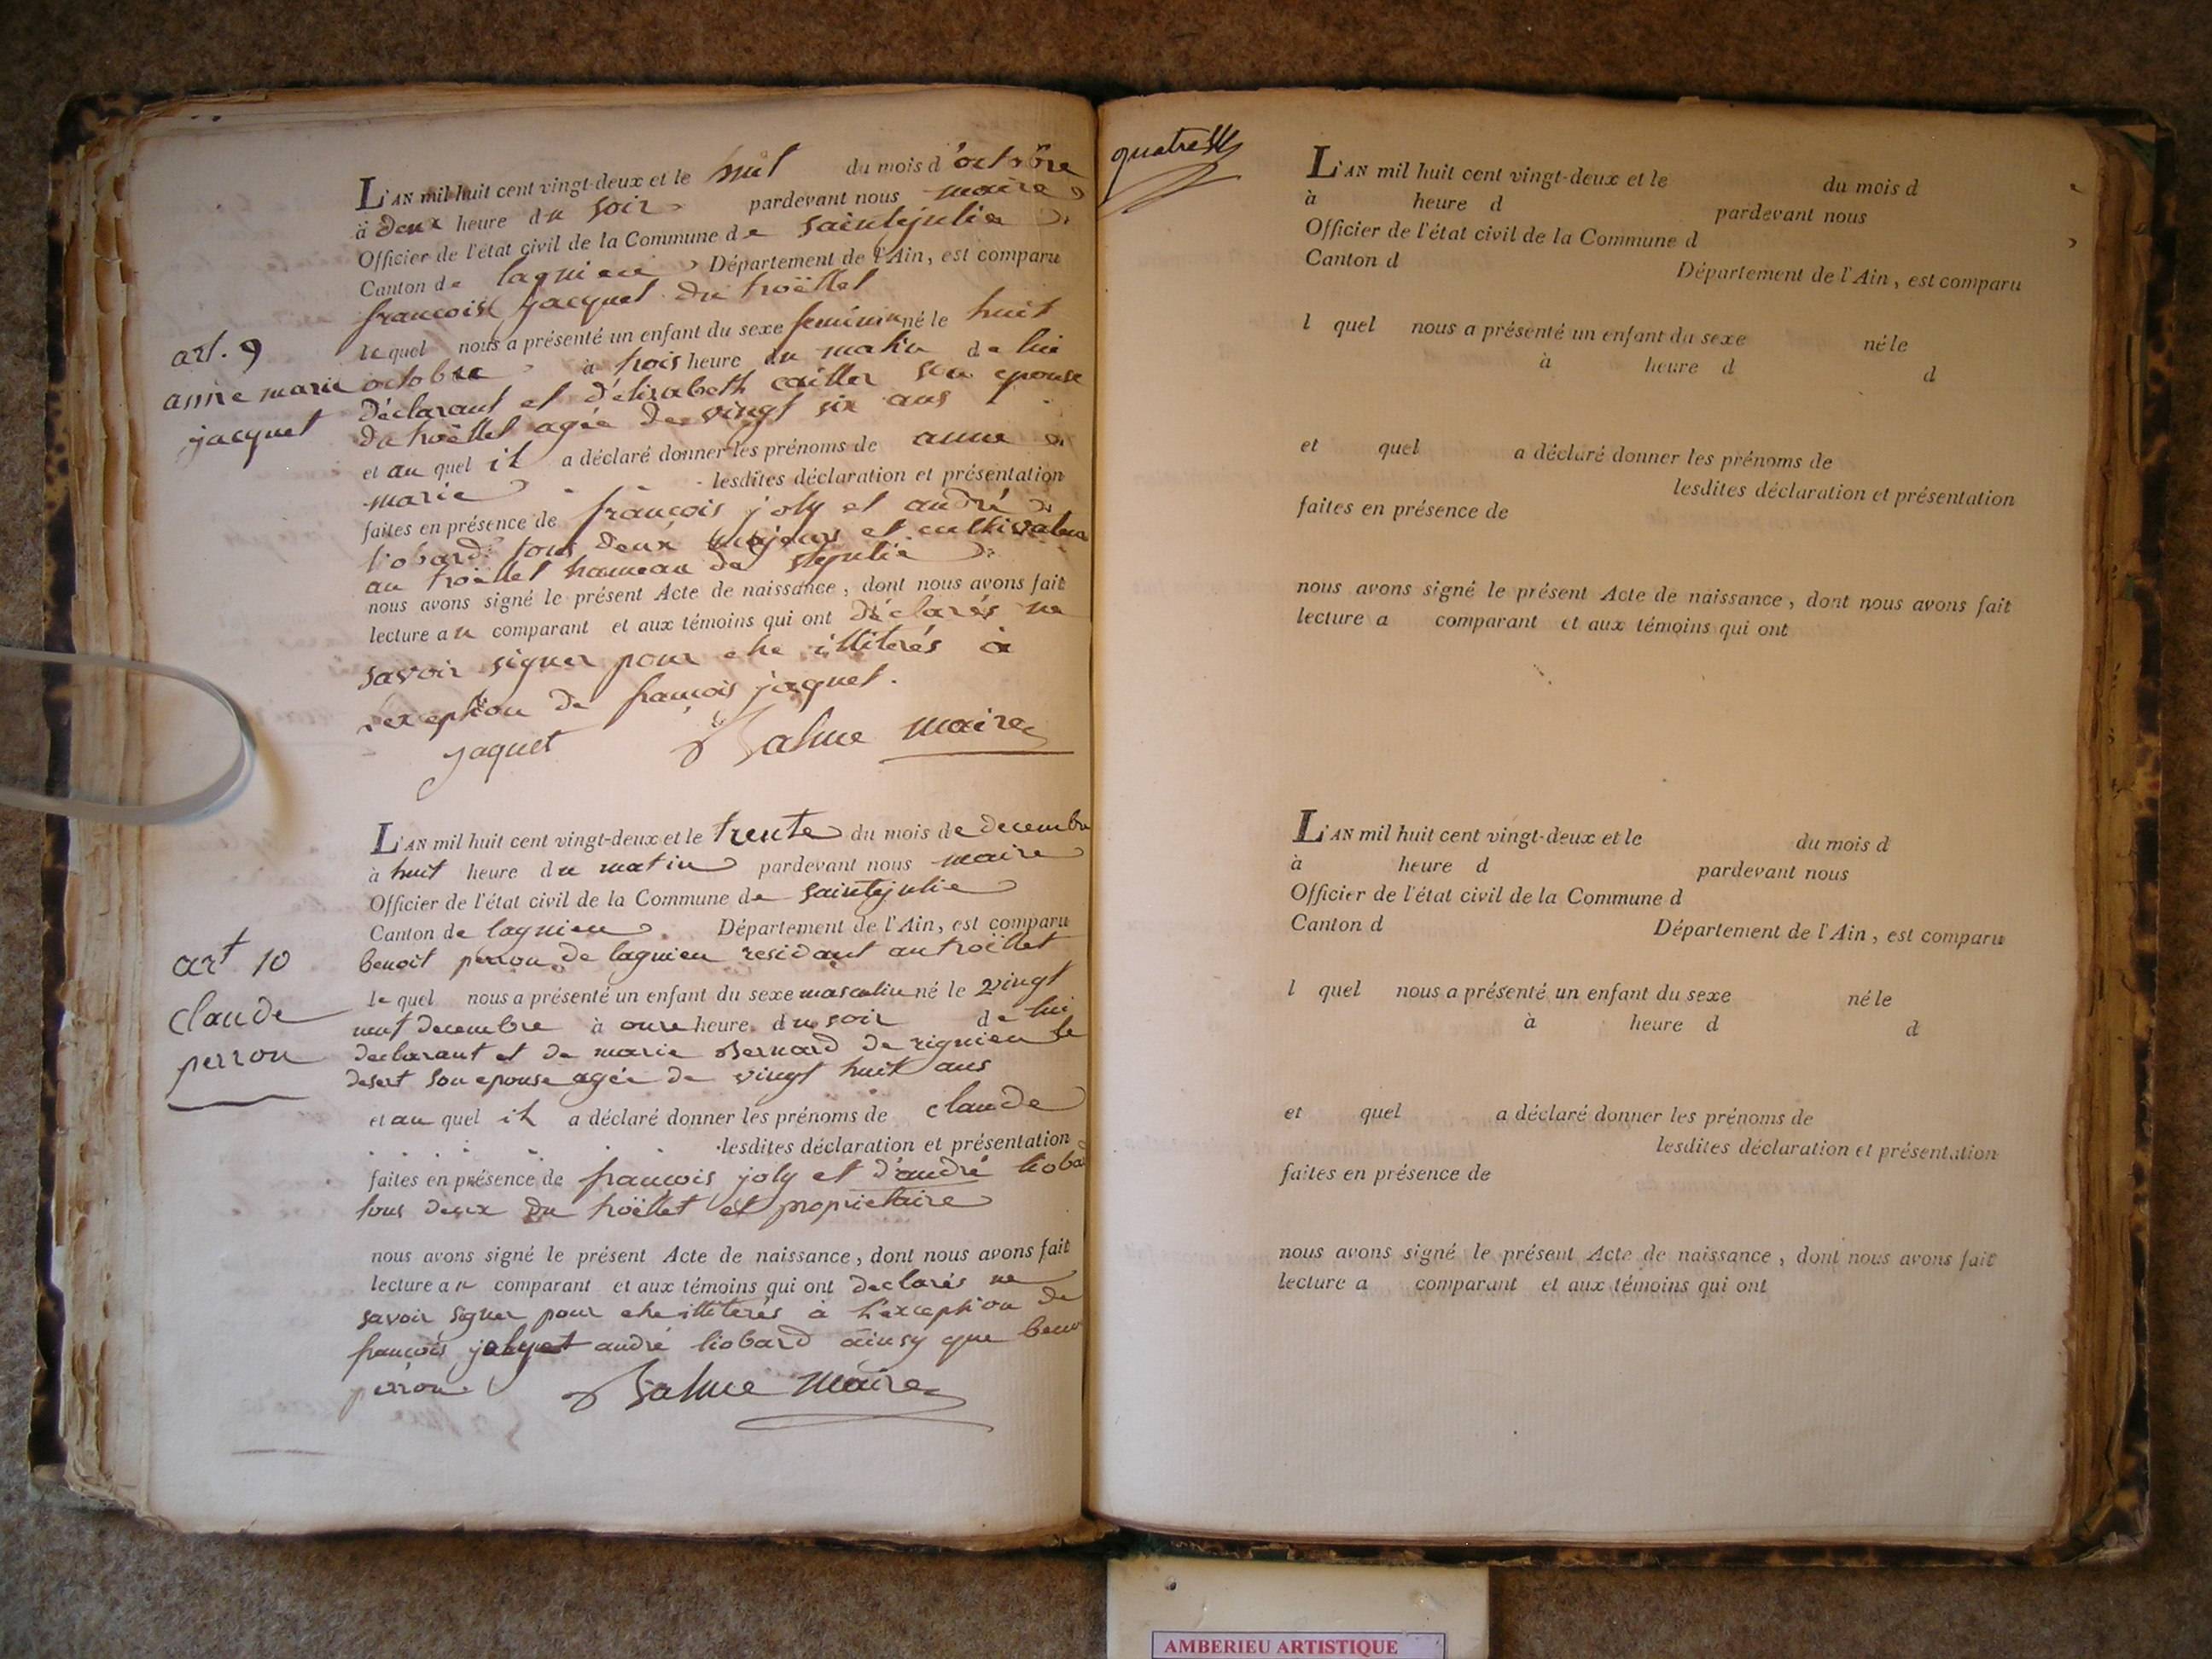 L'AN mil huit cent vingt-deux et le huit du mois d'octobre
à deux heure du soir pardevant nous maire
Officier de l'état civil de la Commune de saintejulie
Canton de lagnieu Département de l'Ain, est comparu
francois jacquet du troëllet
le quel nous a présenté un enfant du sexe feminin né le huit
octobre à trois heure du matin de lui
déclarant et d'élisabeth cailler son epouse
du troëllet agée de vingt six ans
et au quel il a déclaré donner les prénoms de anne
marie lesdites déclaration et présentation
faites en présence de françois joly et andré
liobard tous deux majeurs et cultivateur
au troëllet hameau de stejulie
nous avons signé le présent Acte de naissance, dont nous avons fait
lecture au comparant et aux témoins qui ont déclarés ne
savoir signer pour etre illiterés à
l'exeption de françois jaquet.
jaquet Balme maire
art. 9
anne marie
jacquet
L'AN mil huit cent vingt-deux et le trente du mois de decembre
à huit heure du matin pardevant nous maire
Officier de l'état civil de la Commune de saintejulie
Canton de lagnieu Département de l'Ain, est comparu
benoit perron de lagnieu residant au troëllet
le quel nous a présenté un enfant du sexe masculin né le vingt
neuf decembre à onze heure du soir de lui
declarant et de marie Bernard de rignieu le
desert son epouse agée de vingt huit ans
et au quel il a déclaré donner les prénoms de claude
lesdites déclaration et présentation
faites en présence de francois joly et d'andré lioba
tous deux du troëllet et proprietaire
nous avons signé le présent Acte de naissance, dont nous avons fait
lecture au comparant et aux témoins qui ont declarés ne
savoir signer pour etre illiterés à l'exception de
françois joly et andré liobard ainsy que beno
perron Balme maire
art 10
claude
perron
L'AN mil huit cent vingt-deux et le du mois d
à heure d pardevant nous
Officier de l'état civil de la Commune d
Canton d Département de l'Ain, est comparu
l quel nous a présenté un enfant du sexe né le
à heure d d
et quel a déclaré donner les prénoms de
lesdites déclaration et présentation
faites en présence de
nous avons signé le présent Acte de naissance, dont nous avons fait
lecture a comparant et aux témoins qui ont
L'AN mil huit cent vingt-deux et le du mois d
à heure d pardevant nous
Officier de l'état civil de la Commune d
Canton d Département de l'Ain, est comparu
l quel nous a présenté un enfant du sexe né le
à heure d d
et quel a déclaré donner les prénoms de
lesdites déclaration et présentation
faites en présence de
nous avons signé le présent Acte de naissance, dont nous avons fait
lecture a comparant et aux témoins qui ont
AMBERIEU ARTISTIQUE